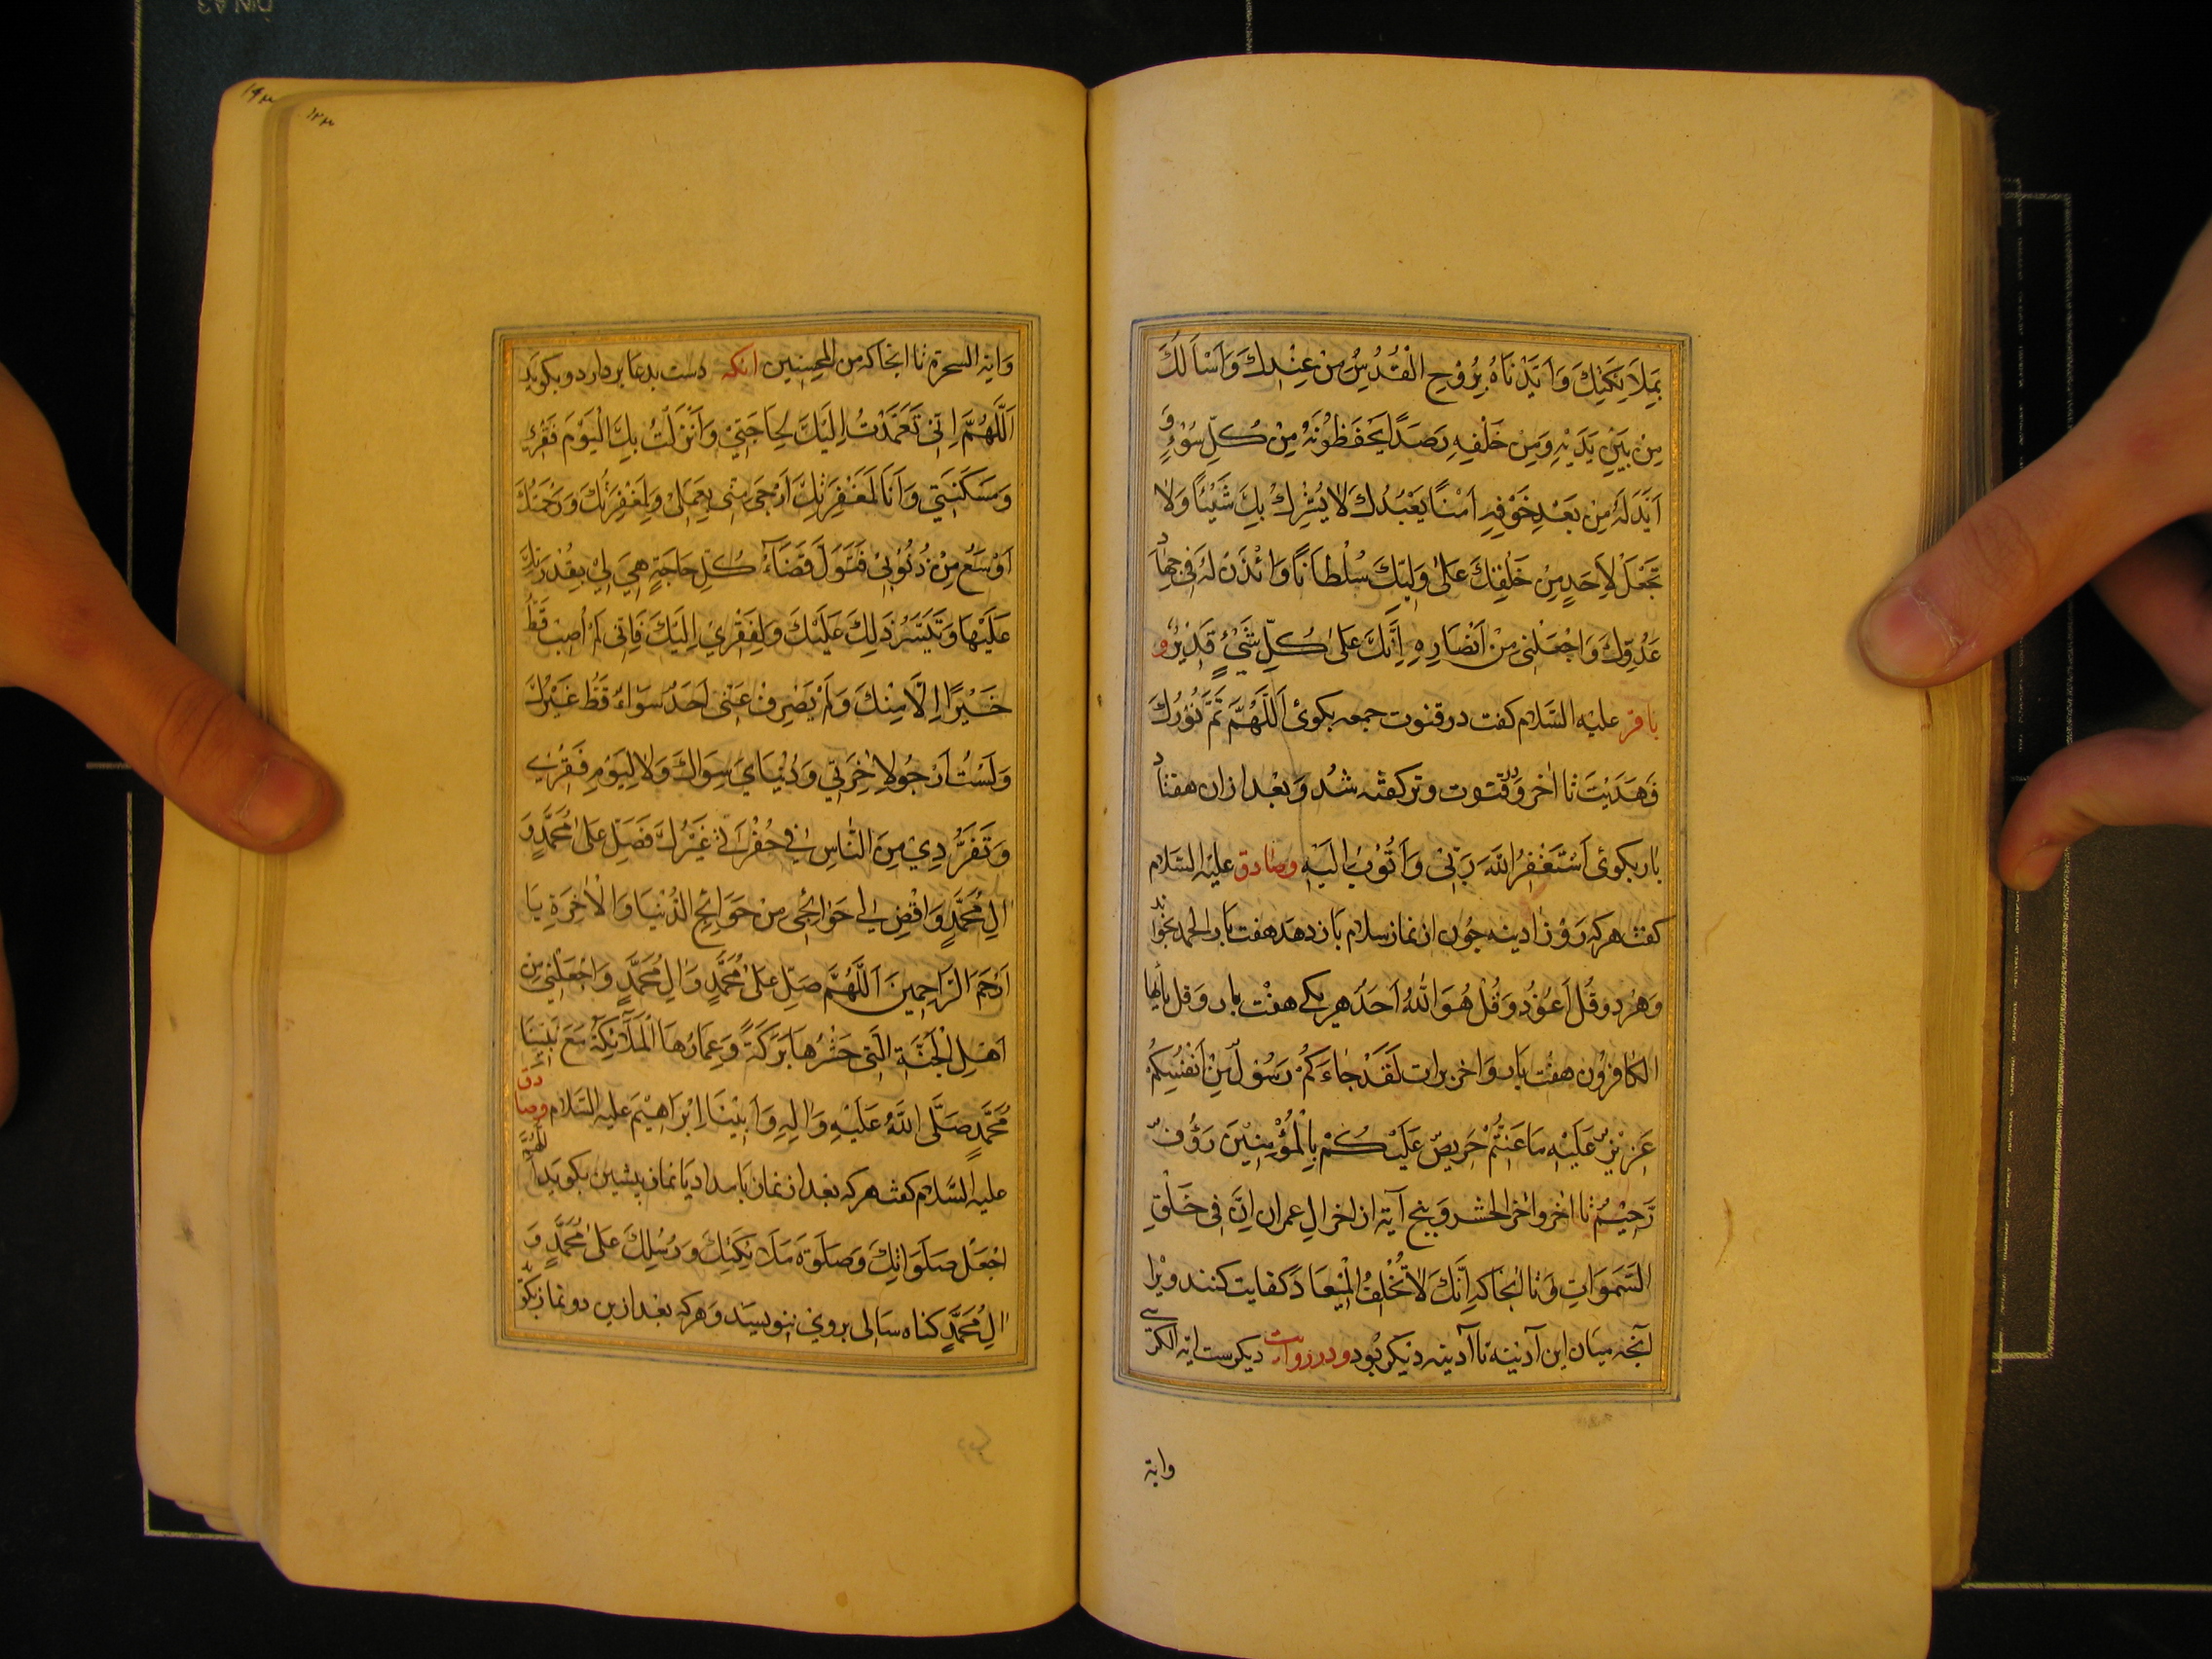 بِمَلَائِكَتِكَ وَاَيَّدْنَاهُ بِرُوْحِ الْقُدُسِ مِنْ عِنْدِكَ وَاَسْاَلُكَ
مِنْ بَيْنِ يَدَيْهِ وَمِنْ خَلْفِهِ رَصَدًا يَحْفَظُوْنَهُ مِنْ كُلِّ سُوْءٍ وَ
اَبْدَلَهُ مِنْ بَعْدِ خَوْفِهِ اَمْنًا يَعْبُدُكَ لَا يُشْرِكُ بِكَ شَيْئًا وَلَا
تَجْعَلْ لِاَحَدٍ مِنْ خَلْقِكَ عَلٰى وَلِيِّكَ سُلْطَانًا وَائْذَنْ لَهُ فِى جِهَادِ
عَدُوِّكَ وَاجْعَلْنِى مِنْ اَنْصَارِهِ اِنَّكَ عَلٰى كُلِّ شَىْءٍ قَدِيْرٌ و
باقر عليه السَّلام كفت در قنوت جمعه بكوئ اَللّٰهُمَّ تَمَّ نُوْرُكَ
فَهَدَيْتَ تا اخر و در قنوت وتر كفته شد و بعد ازان هفتاد
بار بكوئ اَسْتَغْفِرُ اللّٰهَ رَبِّىْ وَاَتُوْبُ اِلَيْهِ وصادق عليه السلام
كفت هر كه روز ادينه جون از نماز سلام باز دهد هفت بار الحمد بخواند
و هر دو قُل اَعُوْذُ و قُلْ هُوَ اللّٰهُ اَحَدٌ هر يكے هفت بار و قل يا ايها
الكافرون هفت بار و اخر برات لَقَدْ جَاءَكُمْ رَسُوْلٌ مِنْ اَنْفُسِكُمْ
عَزِيْزٌ عَلَيْهِ مَا عَنِتُّمْ حَرِيْصٌ عَلَيْكُمْ بِالْمُؤْمِنِيْنَ رَؤُفٌ
رَحِيْمٌ تا اخر و اخر الحشر و پنج آيه از اخر ال عمران اِنَّ فِى خَلْقِ
السَّمٰوَاتِ و تا انجا كه اِنَّكَ لَا تُخْلِفُ الْمِيْعَاد كفايت كنند ويرا
آنچه ميان اين آدينه تا آدينه ديكر بود و در روايت ديكرست اية الكرسى
واية
وَاية السخرة تا انجا كه من المحسنين انكه دست بدعا بردارد و بكويد
اَللّٰهُمَّ اِنِّى تَعَمَّدْتُ اِلَيْكَ بِحَاجَتِىْ وَاَنْزَلْتُ بِكَ الْيَوْمَ فَقْرِىْ
وَمَسْكَنَتِىْ وَاَنَا لِمَغْفِرَتِكَ اَرْجٰى مِنِّى بِعَمَلِىْ وَلِمَغْفِرَتُكَ وَرَحْمَتُكَ
اَوْسَعُ مِنْ ذُنُوْبِىْ فَتَوَلَّ قَضَاءَ كُلِّ حَاجَةٍ هِىَ لِىْ بِقُدْرَتِكَ
عَلَيْهَا وَتَيَسُّرِ ذٰلِكَ عَلَيْكَ وَلِفَقْرِىْ اِلَيْكَ فَاِنِّى لَمْ اُصِبْ قَطُّ
خَيْرًا اِلَّا مِنْكَ وَلَمْ يَصْرِفْ عَنِّى اَحَدٌ سُوْءًا قَطُّ غَيْرُكَ
وَلَسْتُ اَرْجُو لِاٰخِرَتِى وَدُنْيَاىَ سِوَاكَ وَلَا لِيَوْمِ فَقْرِىْ
وَتَفَرُّدِىْ مِنَ النَّاسِ فِى حُفْرَتِى غَيْرُكَ فَصَلِّ عَلٰى مُحَمَّدٍ وَ
اٰلِ مُحَمَّدٍ وَاقْضِ لِى حَوَائِجِى مِنْ حَوَائِجِ الدُّنْيَا وَالْاٰخِرَةِ يَا
اَرْحَمَ الرَّاحِمِيْنَ اَللّٰهُمَّ صَلِّ عَلٰى مُحَمَّدٍ وَاٰلِ مُحَمَّدٍ وَاجْعَلْنِىْ مِنْ
اَهْلِ الْجَنَّةِ الَّتِى حَشْوُهَا بَرَكَةً وَعُمَّارُهَا الْمَلَائِكَةُ مَعَ نَبِيِّنَا
مُحَمَّدٍ صَلَّى اللّٰهُ عَلَيْهِ وَاٰلِهِ وَاَبِيْنَا اِبْرَاهِيْمَ عليه السلام وصادق
عليه السَّلام كفت هر كه بعد از نماز بامداد يا نماز پيشين بكويد اللّهمّ
اجْعَلْ صَلَوَاتِكَ وَصَلٰوةَ مَلَائِكَتِكَ وَرُسُلِكَ عَلٰى مُحَمَّدٍ وَ
اٰلِ مُحَمَّدٍ كناه سالى بروى ننويسند و هر كه بعد ازين دو نماز بكو
۱۲۳